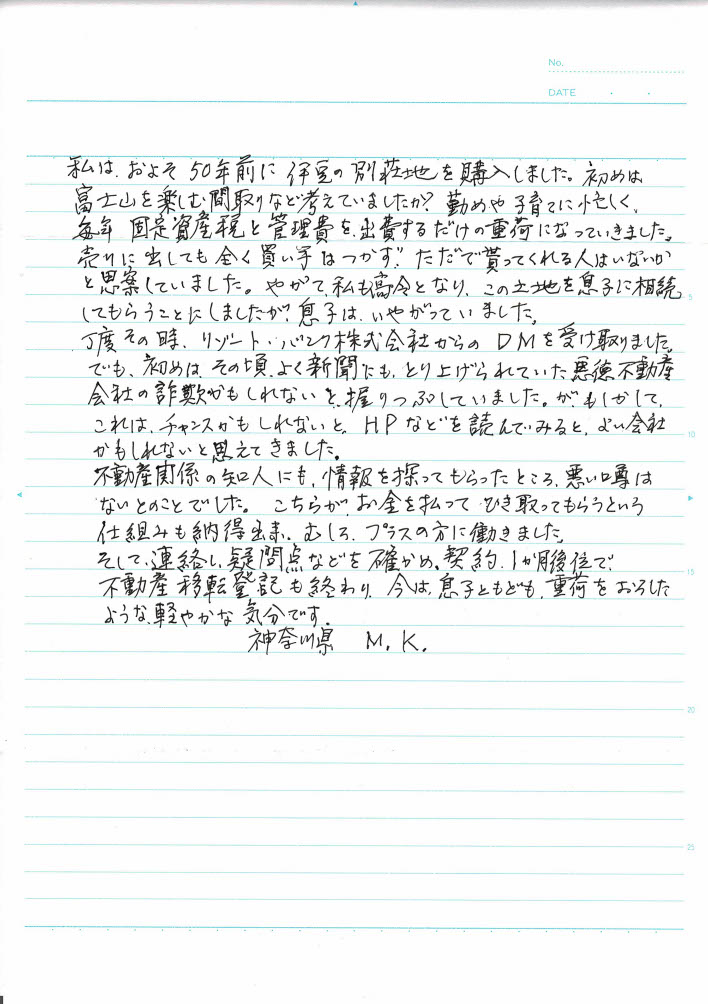 No.
DATE ・ ・
私は、およそ50年前に伊豆の別荘地を購入しました。初めは
富士山を楽しむ間取りなど考えていましたが、勤めや子育てに忙しく、
毎年 固定資産税と管理費を、出費するだけの重荷になっていきました。
売りに出しても全く買い手はつかず、ただで貰ってくれる人はいないか
と思案していました。やがて、私も高令となり、この土地を息子に相続
してもらうことにしましたが、息子は、いやがっていました。
丁度その時、リゾート・バンク株式会社からのDMを受け取りました。
でも、初めは、その頃、よく新聞にも、とり上げられていた悪徳不動産
会社の詐欺かもしれないと、握りつぶしていました。が、もしかして、
これは、チャンスかもしれないと、HPなどを読んでみると、よい会社
かもしれないと思えてきました。
不動産関係の知人にも、情報を探ってもらったところ、悪い噂は
ないとのことでした。こちらが、お金を払って ひき取ってもらうという
仕組みも納得出来、むしろ、プラスの方に働きました。
そして、連絡し、疑問点などを確かめ、契約、1か月後位で、
不動産移転登記も終わり、今は、息子ともども、重荷をおろした
ような、軽やかな気分です。
神奈川県 M.K.
5
10
15
20
25